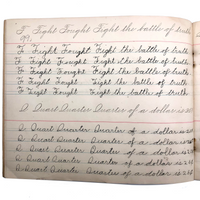 F Fight Fought Fight the battle of truth
F Fight Fought Fight the battle of truth
F Fight Fought Fight the battle of truth
F Fight Fought Fight the battle of truth
F Fight Fought Fight the battle of truth
F Fight Fought Fight the battle of truth
D Quart Quarter Quarter of a dollar is
D Quart Quarter Quarter of a dollar is
D Quart Quarter Quarter of a dollar is
D Quart Quarter Quarter of a dollar is
D Quart Quarter Quarter of a dollar is
D Quart Quarter Quarter of a dollar is